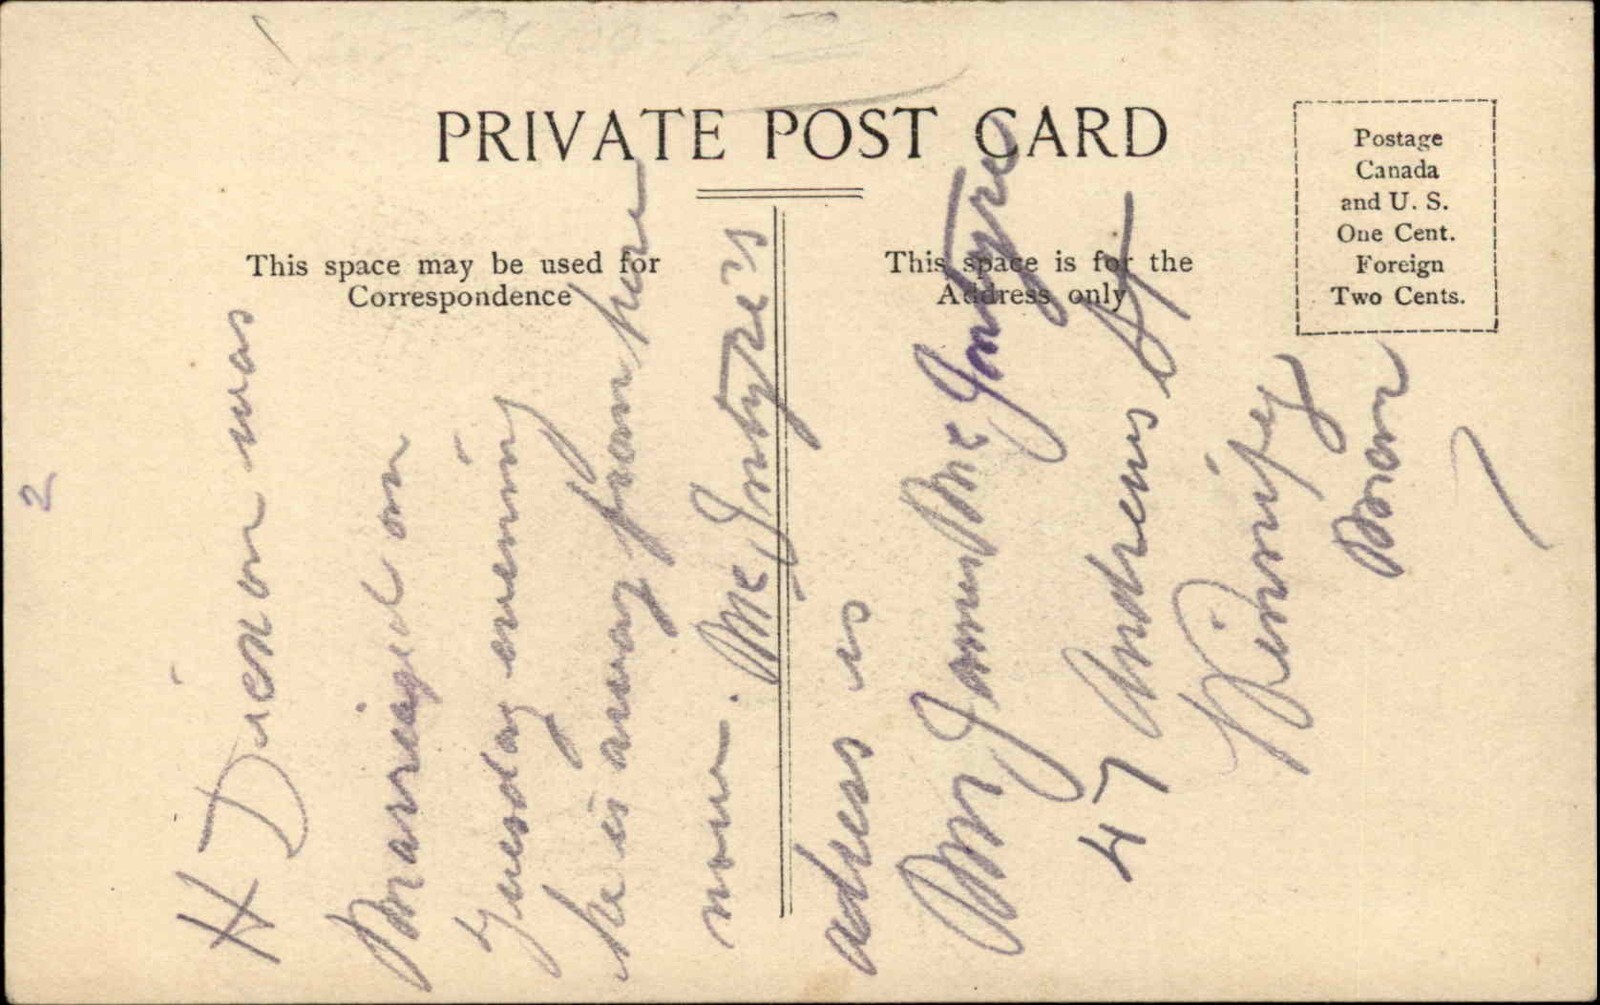 PRIVATE POST CARD
This space may be used for
Correspondence
This space is for the
Address only
Postage
Canada
and U. S.
One Cent.
Foreign
Two Cents.
2
H Dickson was
Marriaged on
Tuesday evening
he is away from here
now. Mc Intyre's
adress is
Mr James Mc Intyre
47 Andrews St
Winnipeg
Man